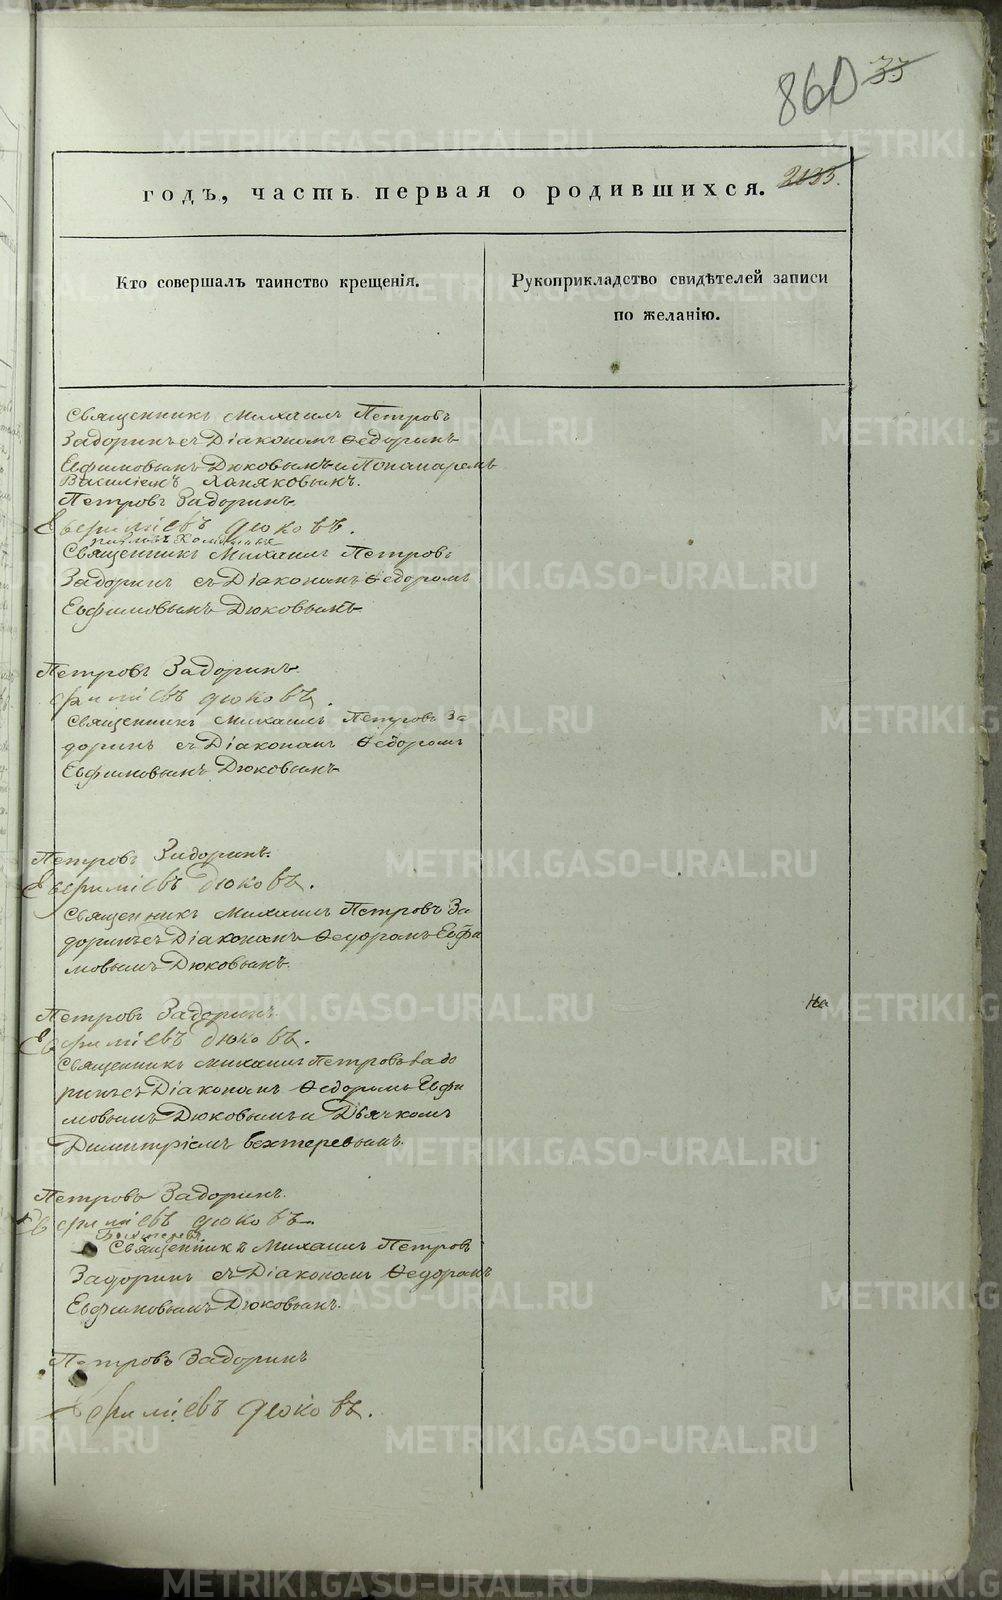 860 33
годъ, часть первая о родившихся. 2135.
Кто совершалъ таинство крещенія.
Рукоприкладство свидѣтелей записи
по желанію.
Священникъ Михаилъ Петровъ
Задоринъ съ Діакономъ Ѳедоромъ
Евфимовымъ Дюковымъ и Пономаремъ
Василіемъ Хапяковымъ.
Петровъ Задоринъ
Евфиміевъ Дюковъ.
Священникъ Михаилъ Петровъ
Задоринъ съ Діакономъ Ѳедоромъ
Евфимовымъ Дюковымъ
Петровъ Задоринъ
Евфиміевъ Дюковъ.
Священникъ Михаилъ Петровъ За
доринъ съ Діакономъ Ѳедоромъ
Евфимовымъ Дюковымъ
Петровъ Задоринъ.
Евфиміевъ Дюковъ.
Священникъ Михаилъ Петровъ За
доринъ съ Діакономъ Ѳедоромъ Евфи
мовымъ Дюковымъ.
Петровъ Задоринъ.
Евфиміевъ Дюковъ.
Священникъ Михаилъ Петровъ Задо
ринъ съ Діакономъ Ѳедоромъ Евфи
мовымъ Дюковымъ и Дьячкомъ
Димитріемъ Бехтеревымъ.
Петровъ Задоринъ.
Евфиміевъ Дюковъ.
Бехтеревъ
Священникъ Михаилъ Петровъ
Задоринъ съ Діакономъ Ѳедоромъ
Евфимовымъ Дюковымъ.
Петровъ Задоринъ
Евфиміевъ Дюковъ.
На
METRIKI.GASO-URAL.RU